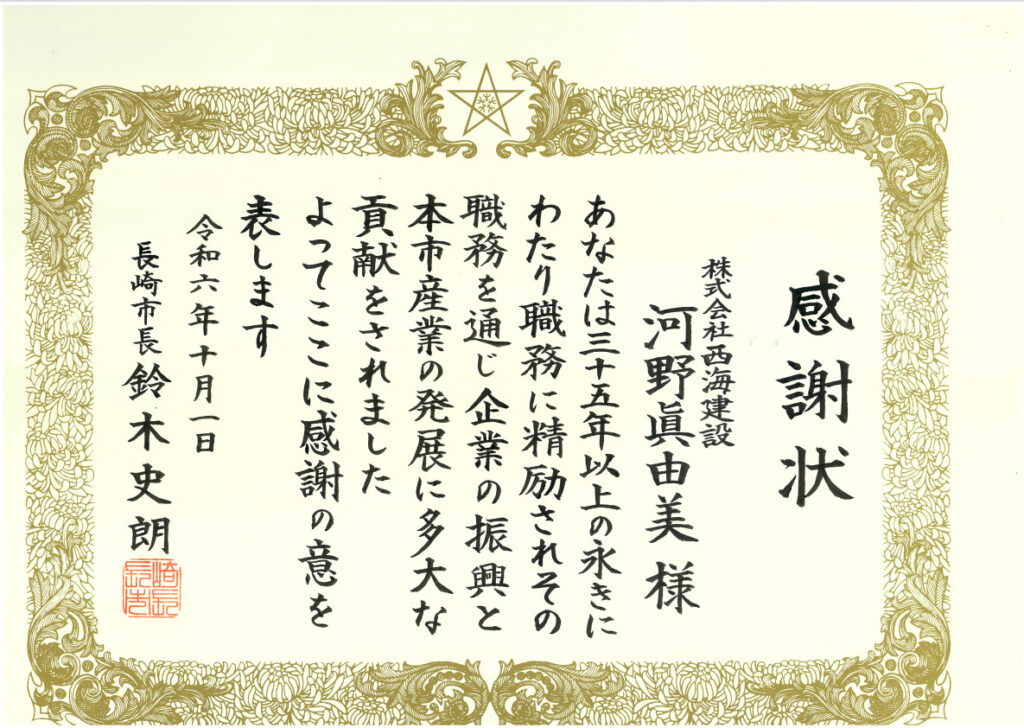 感謝状
株式会社西海建設
河野眞由美様
あなたは三十五年以上の永きに
わたり職務に精励されその
職務を通じ企業の振興と
本市産業の発展に多大な
貢献をされました
よってここに感謝の意を
表します
令和六年十月一日
長崎市長鈴木史朗